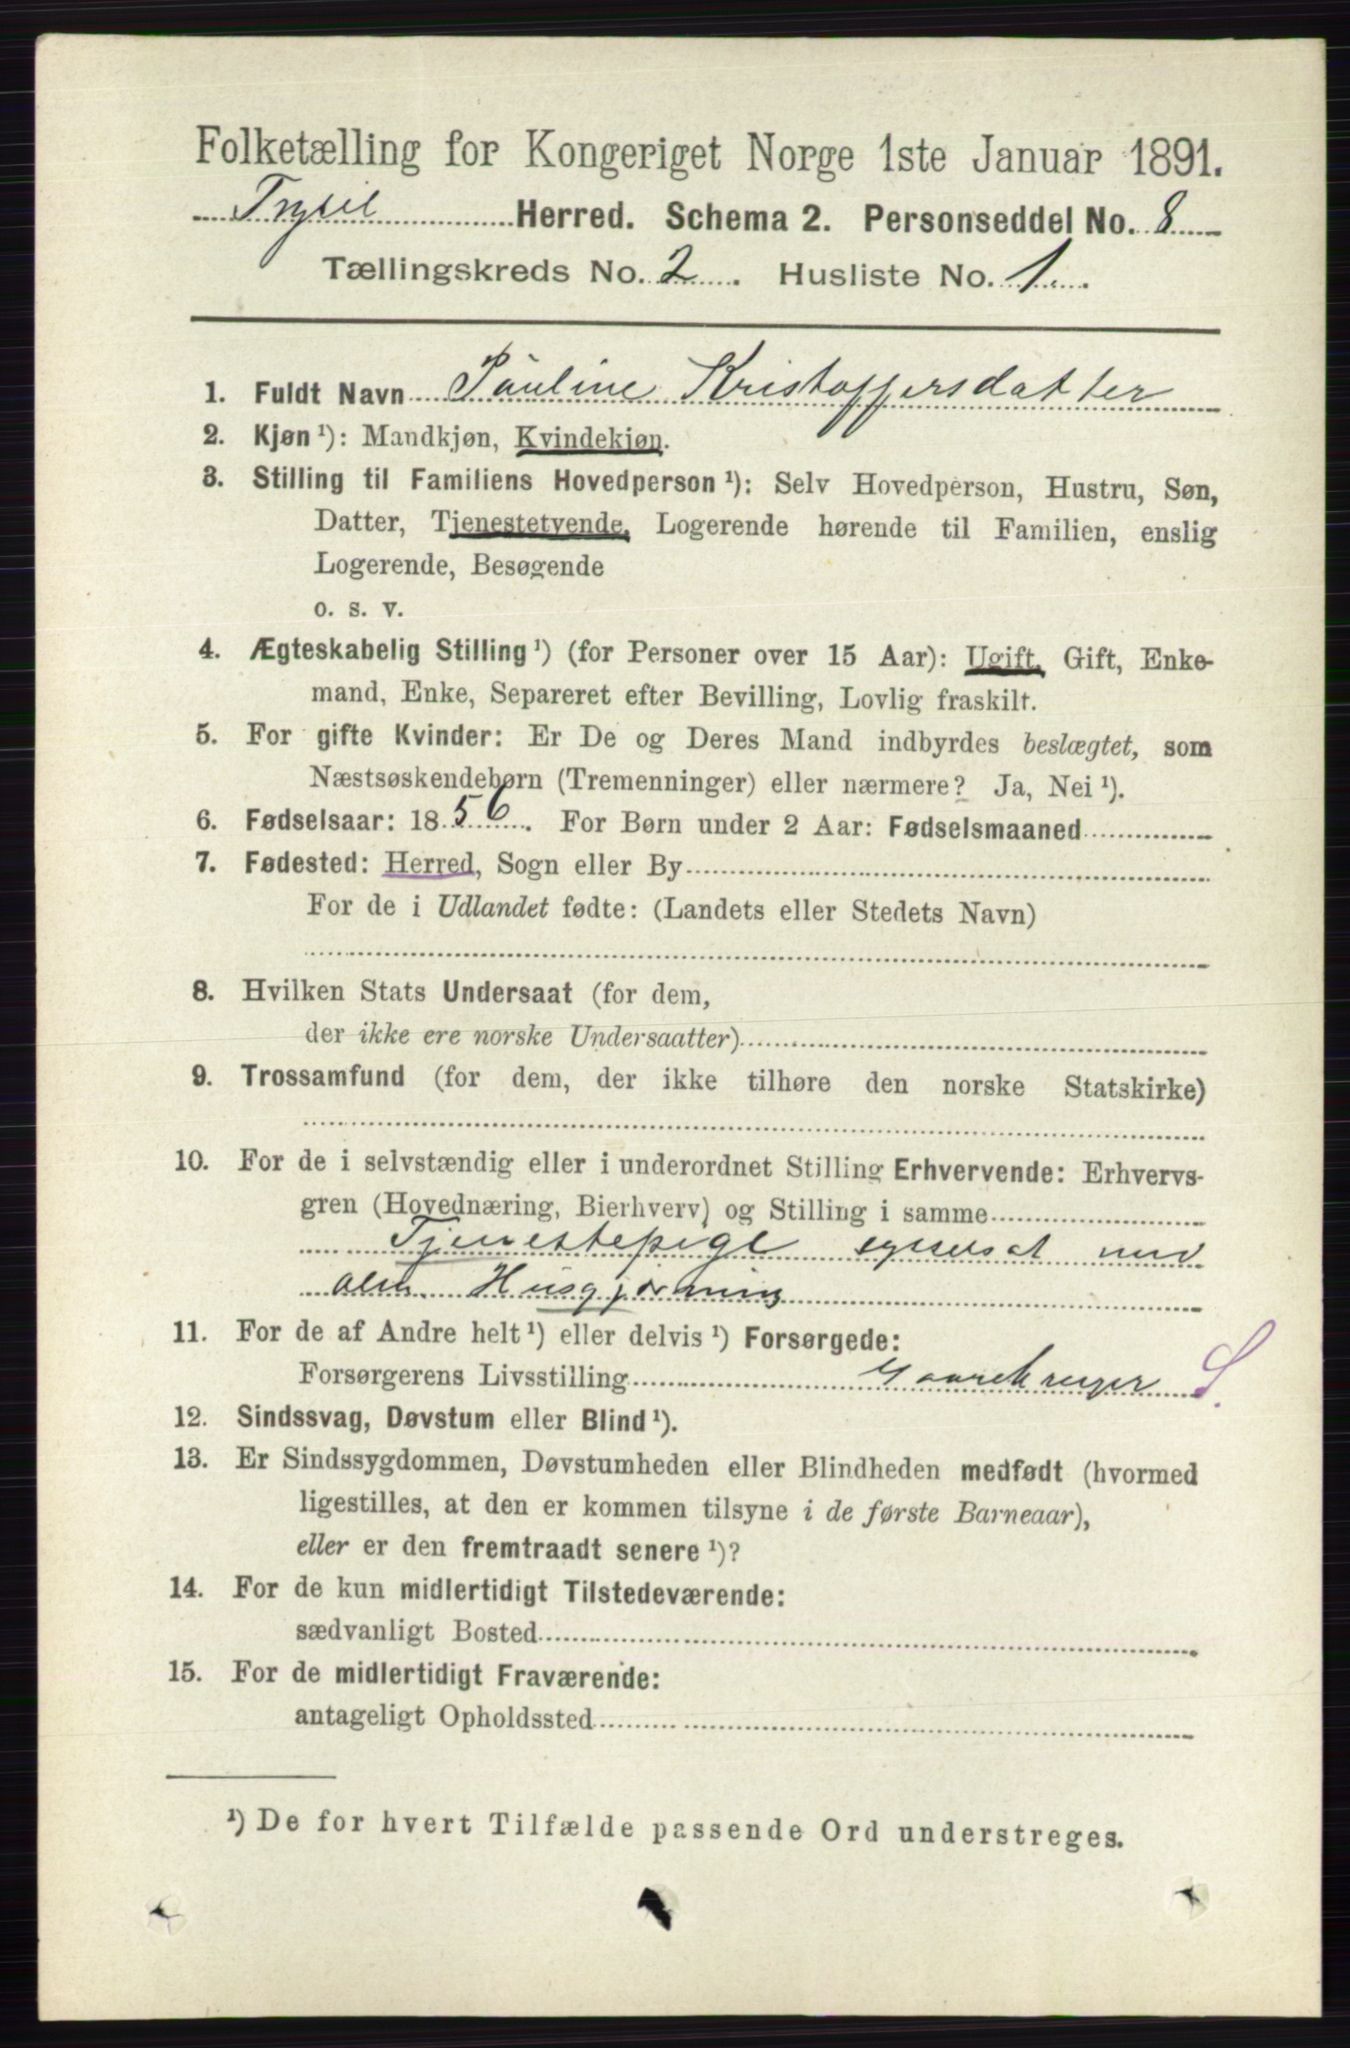 Folketælling for Kongeriget Norge 1ste Januar 1891.
Trysil Herred. Schema 2. Personseddel No. 8
Tællingskreds No. 2. Husliste No. 1.
1. Fuldt Navn Pauline Kristoffersdatter
2. Kjøn ¹): Mandkjøn, Kvindekjøn.
3. Stilling til Familiens Hovedperson ¹): Selv Hovedperson, Hustru, Søn,
Datter, Tjenestetyende, Logerende hørende til Familien, enslig
Logerende, Besøgende
o. s. v.
4. Ægteskabelig Stilling ¹) (for Personer over 15 Aar): Ugift, Gift, Enke-
mand, Enke, Separeret efter Bevilling, Lovlig fraskilt.
5. For gifte Kvinder: Er De og Deres Mand indbyrdes beslægtet, som
Næstsøskendebørn (Tremenninger) eller nærmere? Ja, Nei ¹).
6. Fødselsaar: 1856. For Børn under 2 Aar: Fødselsmaaned
7. Fødested: Herred, Sogn eller By
For de i Udlandet fødte: (Landets eller Stedets Navn)
8. Hvilken Stats Undersaat (for dem,
der ikke ere norske Undersaatter)
9. Trossamfund (for dem, der ikke tilhøre den norske Statskirke)
10. For de i selvstændig eller i underordnet Stilling Erhvervende: Erhvervs-
gren (Hovednæring, Bierhverv) og Stilling i samme
Tjenestepige sysselsat med
alm. Husgjerning
11. For de af Andre helt ¹) eller delvis ¹) Forsørgede:
Forsørgerens Livsstilling S.
12. Sindssvag, Døvstum eller Blind ¹).
13. Er Sindssygdommen, Døvstumheden eller Blindheden medfødt (hvormed
ligestilles, at den er kommen tilsyne i de første Barneaar),
eller er den fremtraadt senere ¹)?
14. For de kun midlertidigt Tilstedeværende:
sædvanligt Bosted
15. For de midlertidigt Fraværende:
antageligt Opholdssted
¹) De for hvert Tilfælde passende Ord understreges.